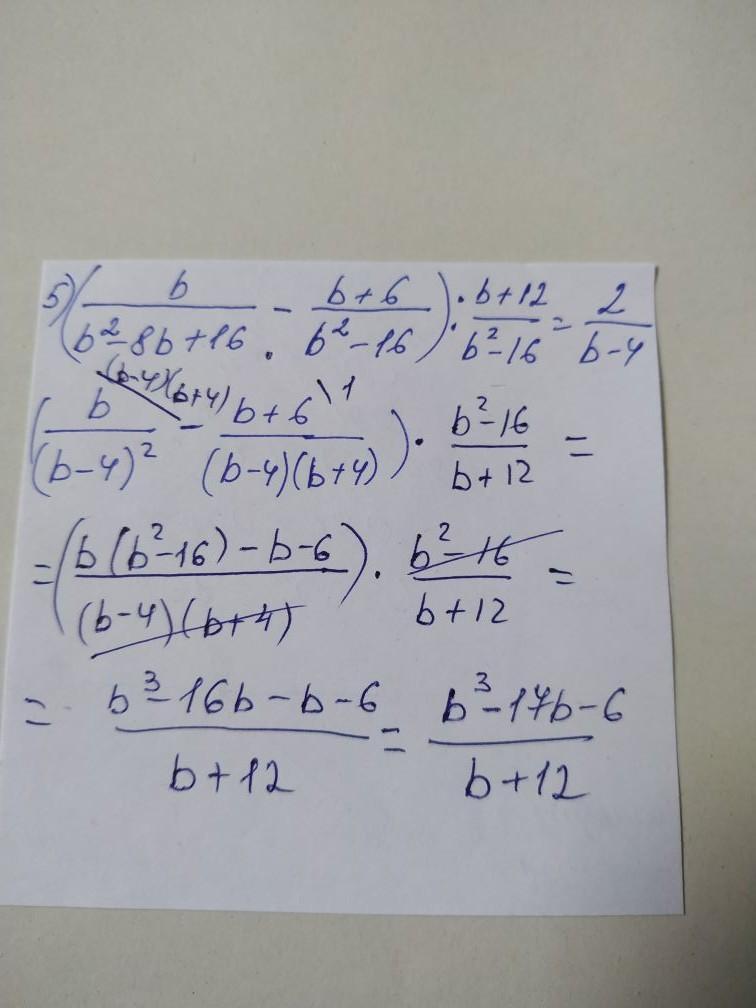 5) (b/(b²-8b+16) - (b+6)/(b²-16)) : (b+12)/(b²-16) = 2/(b-4)
(b-4)(b+4) \1
(b/(b-4)² - (b+6)/((b-4)(b+4))) · (b²-16)/(b+12) =
= ((b(b²-16)-b-6)/((b-4)(b+4))) · (b²-16)/(b+12) =
= (b³-16b-b-6)/(b+12) = (b³-17b-6)/(b+12)